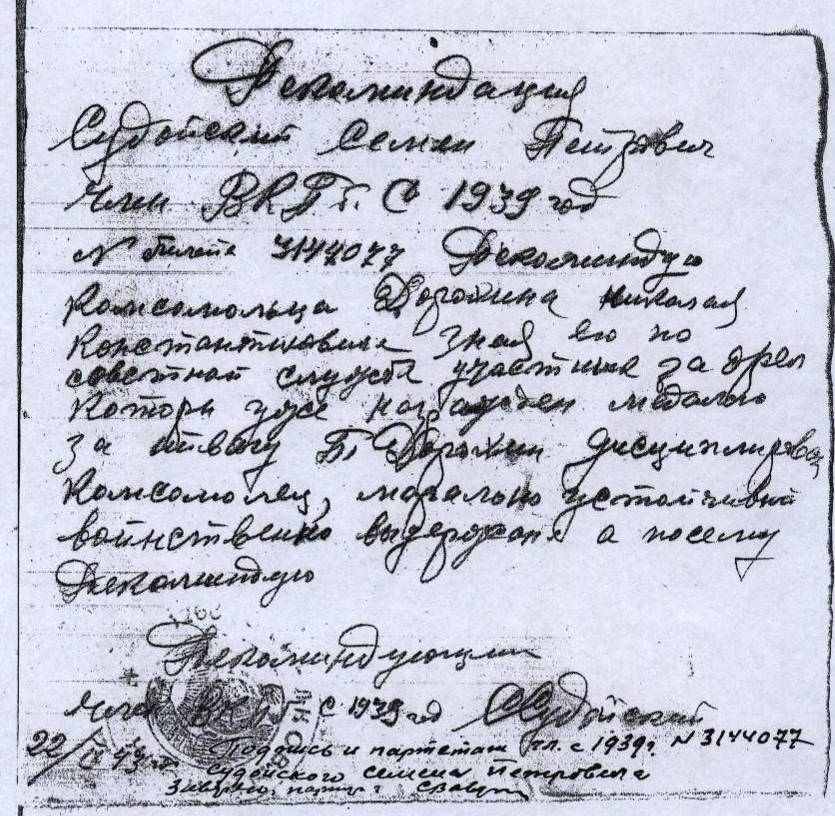 Рекоминдация
Судойский Семен Петрович
член ВКПб. С 1939 год
N билета 3147077 Рекоминдую
комсомольца Дорохина Николая
Константиновича зная его по
совстной службе участника за
Которы уже награжден медалю
за отвагу Т. Дорохин
Комсомолец, морально устойчивый
воинственно выдержан а посему
Рекоминдую
Рекоминдующий
член ВКПб с 1939 год ССудойский
22/ 43 Подпись и с 1939 г. N 3144077
Судойского Семена Петровича